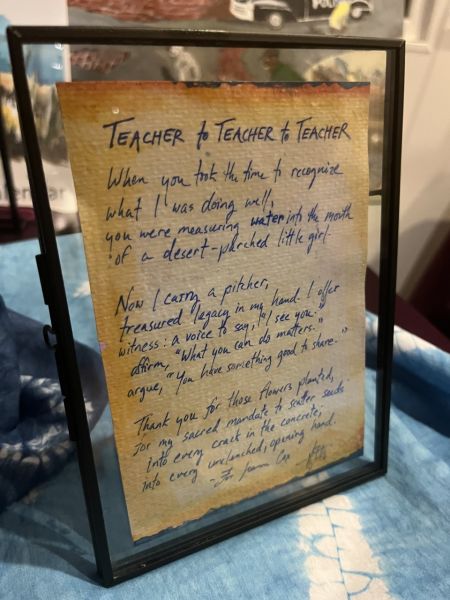 POLI
TEACHER to TEACHER to TEACHER
When you took the time to recognize
what I was doing well,
you were measuring water into the mouth
of a desert-parched little girl.
Now I carry a pitcher,
treasured legacy in my hand. I offer
witness: a voice to say, "I see you."
affirm, "What you can do matters."
argue, "You have something good to share."
Thank you for those flowers planted,
for my sacred mandate to scatter seeds
into every crack in the concrete;
into every unclenched, opening hand.
- For